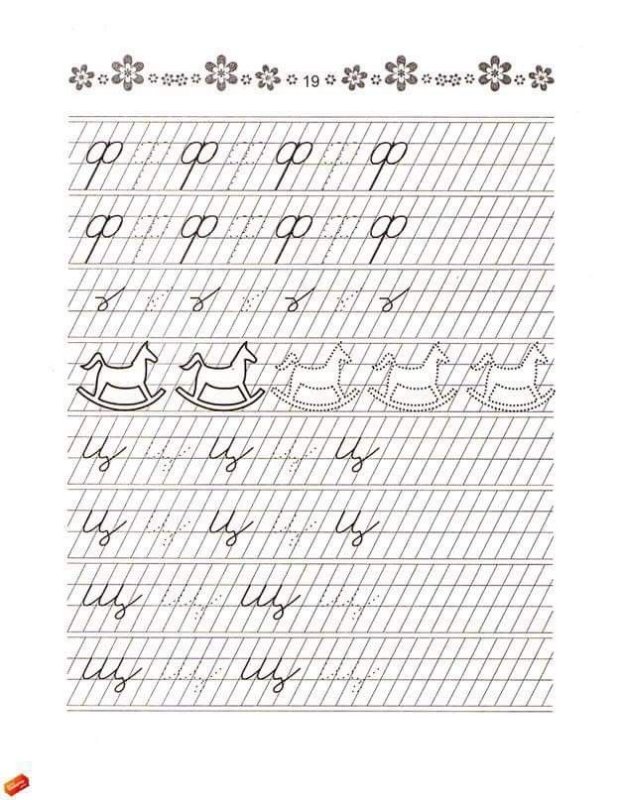 19
ф ф ф ф ф ф ф
ф ф ф ф ф ф ф
ц ц ц ц ц
ц ц ц ц ц
щ щ щ щ
щ щ щ щ